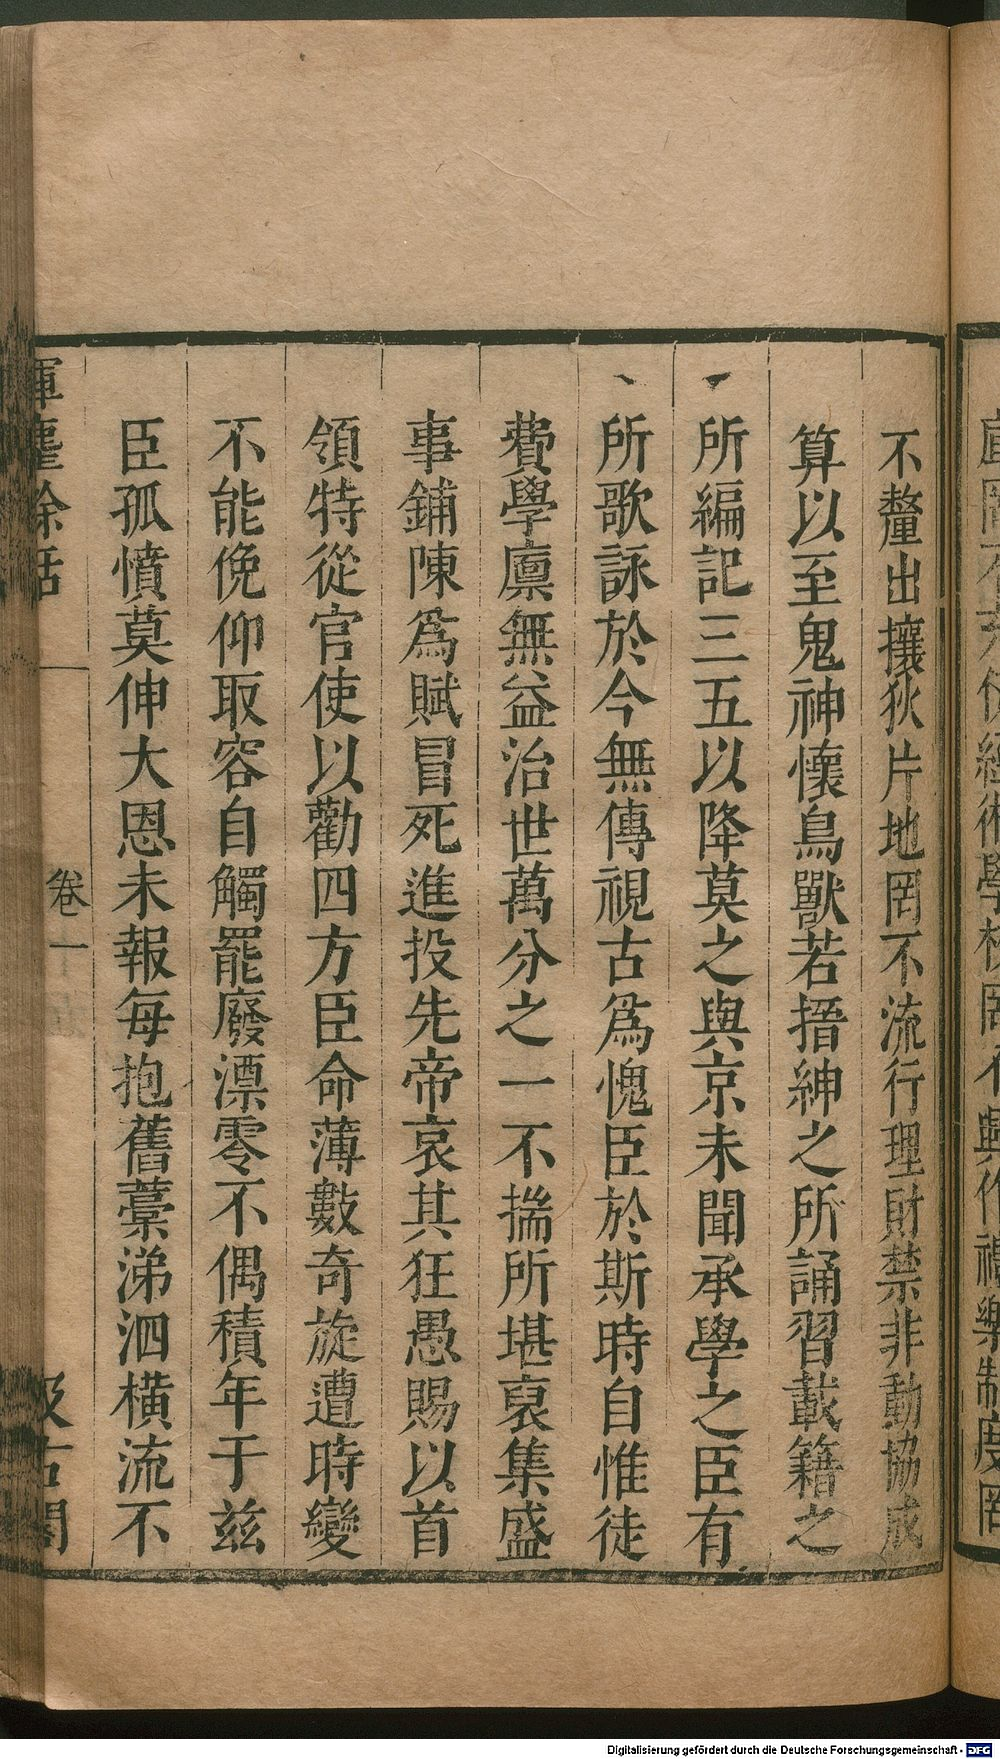 不釐出攘狄片地罔不流行理財禁非動協成
算以至鬼神懷鳥獸若搢紳之所誦習載籍之
所編記三五以降莫之與京未聞承學之臣有
所歌詠於今無傳視古爲愧臣於斯時自惟徒
費學廩無益治世萬分之一不揣所堪裒集盛
事鋪陳爲賦冒死進投先帝哀其狂愚賜以首
領特從官使以勸四方臣命薄數奇旋遭時變
不能俛仰取容自觸罷廢漂零不偶積年于茲
臣孤憤莫伸大恩未報每抱舊藁涕泗橫流不
揮麈餘話
卷一
汲古閣
Digitalisierung gefördert durch die Deutsche Forschungsgemeinschaft - DFG